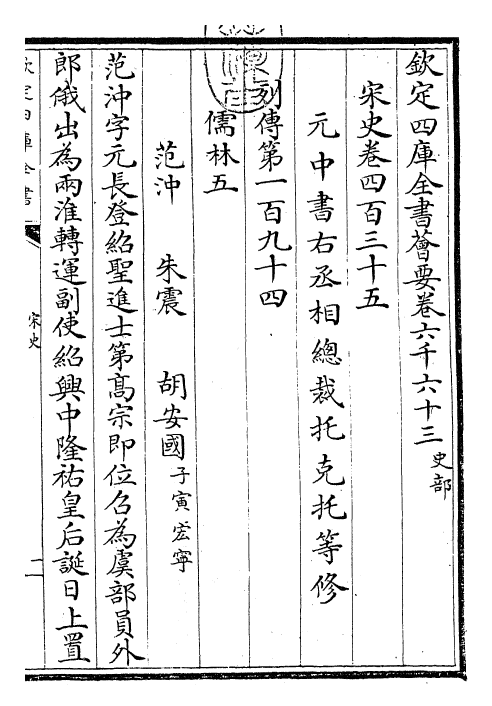 欽定四庫全書薈要卷六千六十三 史部
宋史卷四百三十五
元中書右丞相總裁托克托等修
列傳第一百九十四
儒林五
范沖 朱震 胡安國 子寅 宏 寧
范沖字元長登紹聖進士第髙宗即位召為虞部員外
郎俄出為兩淮轉運副使紹興中隆祐皇后誕日上置
欽定四庫全書
宋史